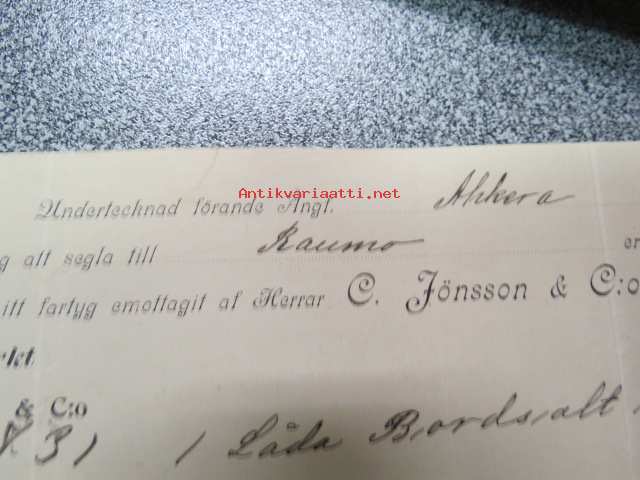 Antikvariaatti.net
Undertecknad förande Ångf. Ahkera
g att segla till Raumo er
itt fartyg emottagit af Herrar C. Jönsson & C:o
rket.
& C:o
31 1 Låda Bordsalt